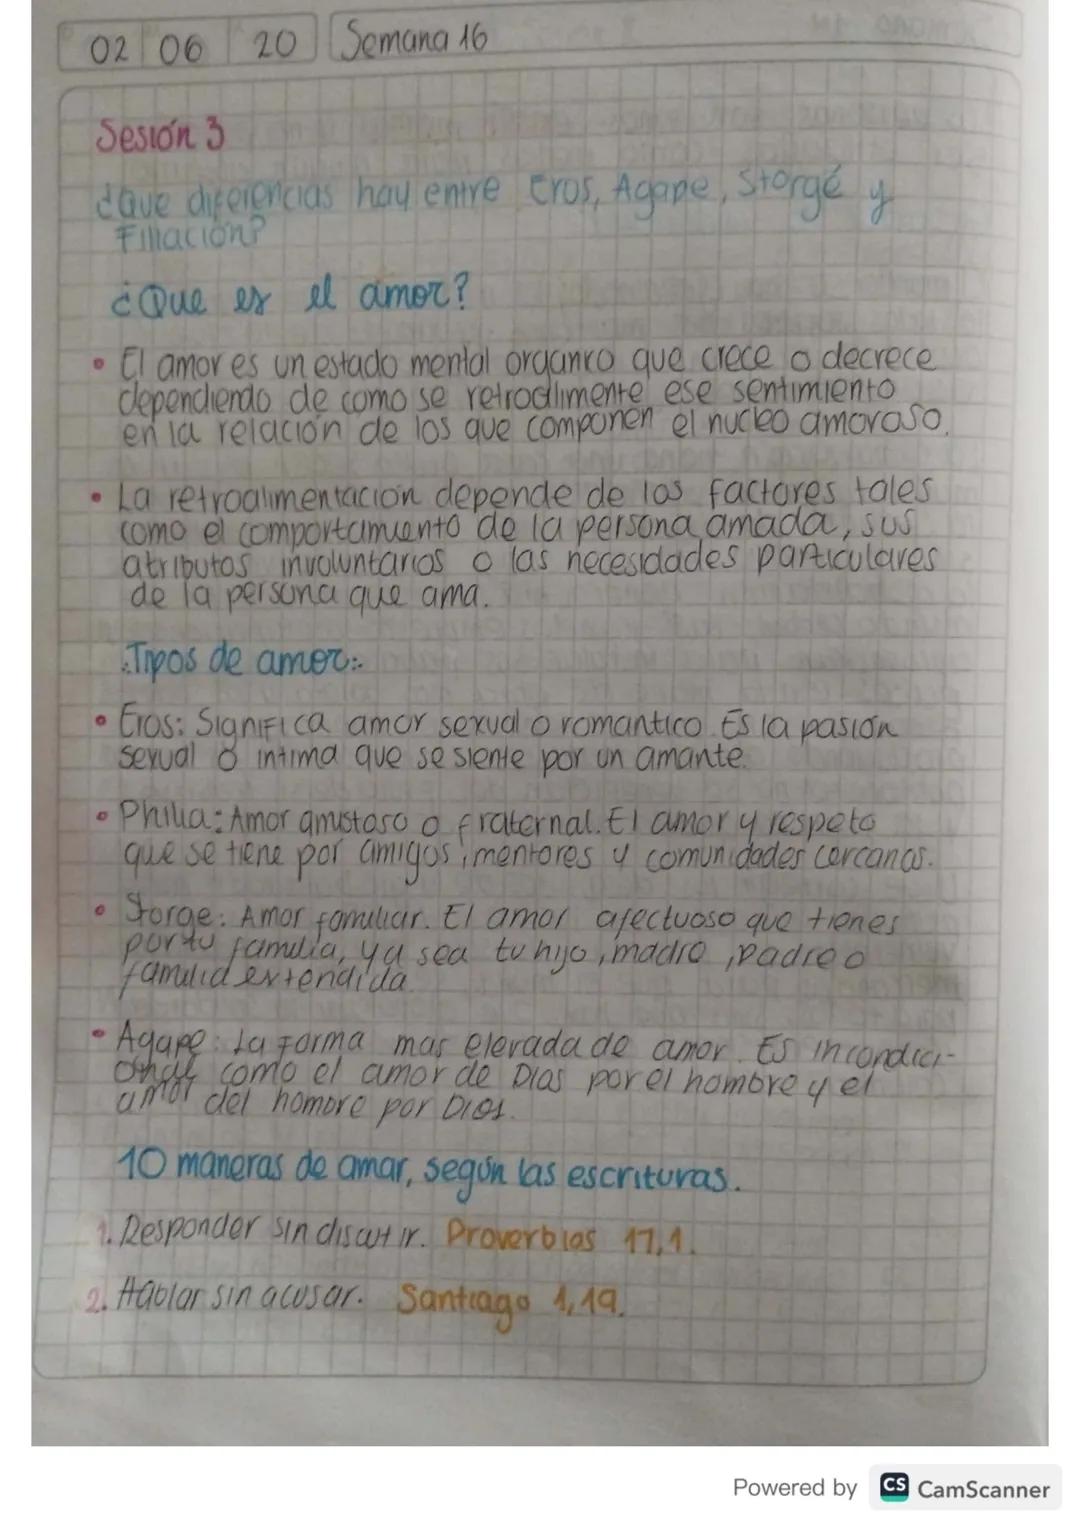 02 06 20 Semana 16
Sesión 3
¿Que diferencias hay entre Eros, Agape, Storgé y
Filiación?
¿Que es el amor?
• El amor es un estado mental organico que crece o decrece
dependiendo de como se retroalimente ese sentimiento
en la relación de los que componen el nucleo amoroso.
• La retroalimentación depende de los factores tales
como el comportamiento de la persona amada, sus
atributos involuntarios o las necesidades particulares
de la persona que ama.
:Tipos de amor:.
• Eros: Significa amor sexual o romantico. Es la pasión
sexual o intima que se siente por un amante.
• Philia: Amor amistoso o fraternal. El amor y respeto
que se tiene por amigos, mentores y comunidades cercanas.
• Storge: Amor familiar. El amor afectuoso que tienes
por tu familia, ya sea tu hijo, madre, padre o
familia extendida.
• Agape: La forma mas elevada de amor. Es incondici-
onal como el amor de Dias por el hombre y el
amor del hombre por Dios.
10 maneras de amar, según las escrituras.
1. Responder sin discutir. Proverbios 17,1.
2. Hablar sin acusar. Santiago 1,19.
Powered by CS CamScanner